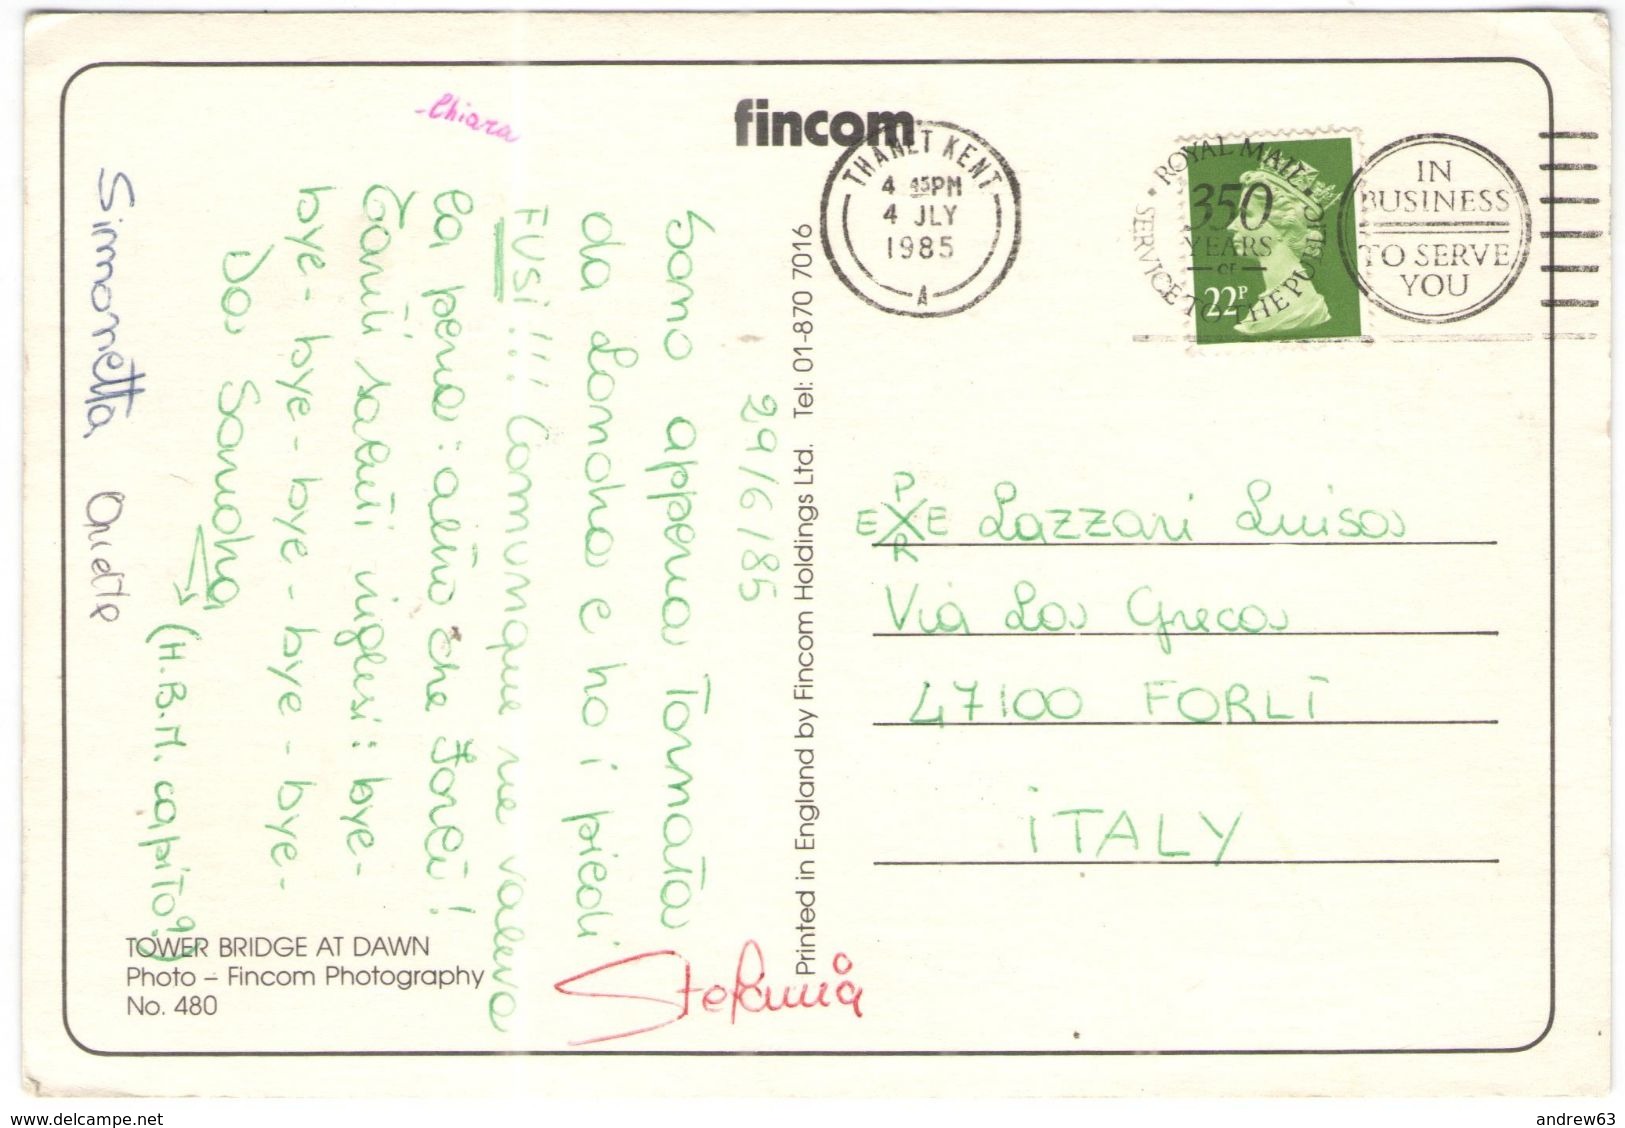 fincom
THANET KENT
4 45PM
4 JLY
1985
A
ROYAL MAIL
350
YEARS
OF
SERVICE TO THE PUBLIC
22P
IN
BUSINESS
TO SERVE
YOU
29/6/85
Sono appena tornata
da Londra e ho i piedi
FUSI!!! Comunque ne valeva
la pena: altro che Forlì!
Tanti saluti inglesi: bye-
bye-bye-bye-bye-bye-
Da Sandra
(H.B.M. capito?)
-Chiara
Simonetta
Stefania
Lazzari Luisa
Via La Greca
47100 FORLI
ITALY
Printed in England by Fincom Holdings Ltd. Tel: 01-870 7016
TOWER BRIDGE AT DAWN
Photo – Fincom Photography
No. 480
delcampe.net
andrew63